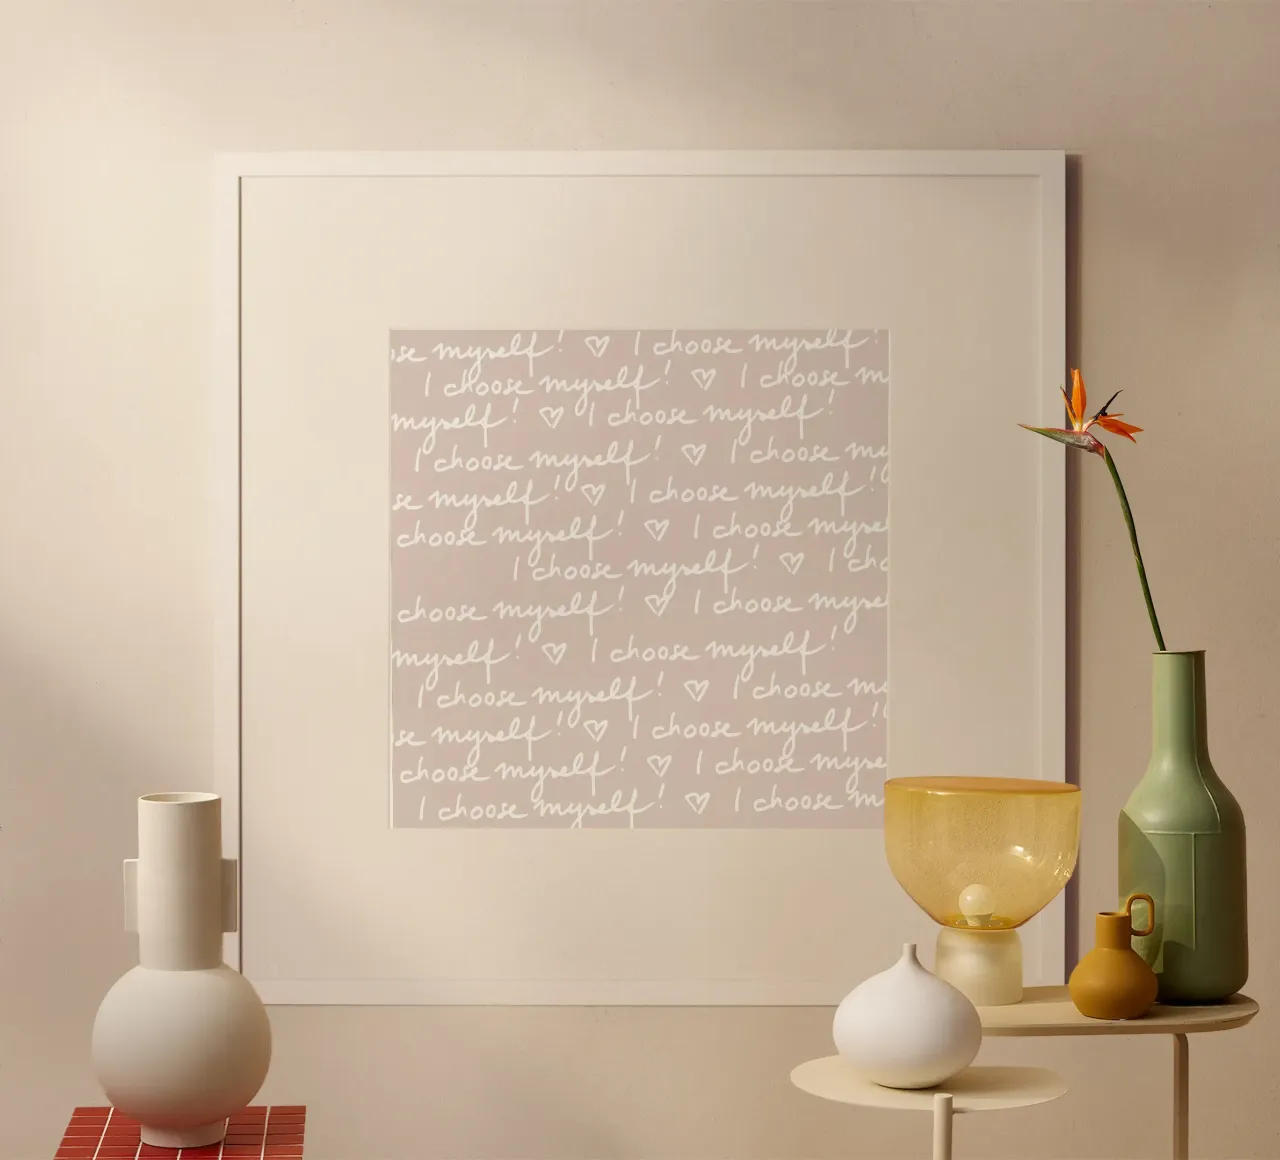 se myself! ♡ I choose myself!
I choose myself! ♡ I choose m
myself! ♡ I choose myself!
I choose myself! ♡ I choose my
se myself! ♡ I choose myself!
choose myself! ♡ I choose myse
I choose myself! ♡ I cho
choose myself! ♡ I choose myse
myself! ♡ I choose myself!
I choose myself! ♡ I choose my
se myself! ♡ I choose myself!
choose myself! ♡ I choose myse
I choose myself! ♡ I choose m